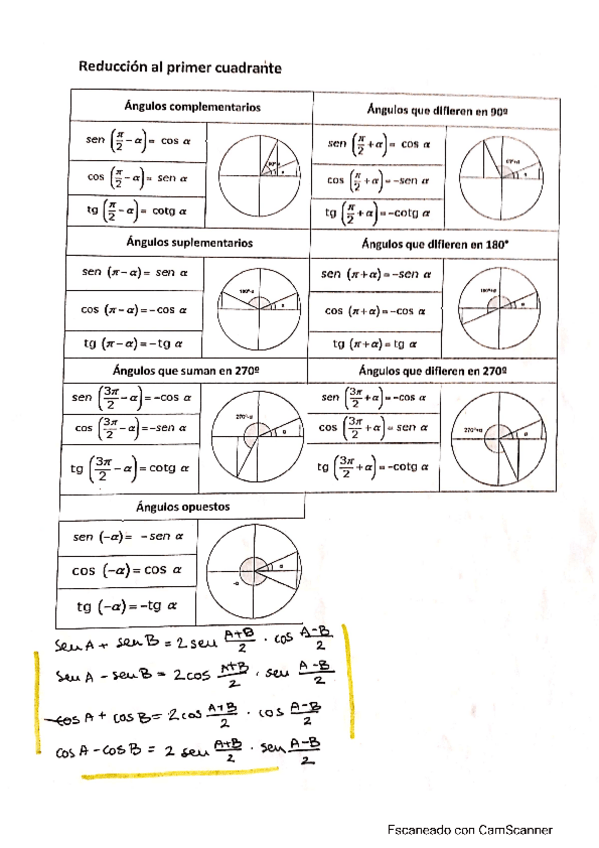 Reducción al primer cuadrante
Ángulos complementarios
sen (π/2 − α) = cos α
cos (π/2 − α) = sen α
tg (π/2 − α) = cotg α
90º-α
α
Ángulos que difieren en 90º
sen (π/2 + α) = cos α
cos (π/2 + α) = −sen α
tg (π/2 + α) = −cotg α
90º+α
α
Ángulos suplementarios
sen (π − α) = sen α
cos (π − α) = −cos α
tg (π − α) = −tg α
180º-α
α
Ángulos que difieren en 180°
sen (π + α) = −sen α
cos (π + α) = −cos α
tg (π + α) = tg α
180º+α
α
Ángulos que suman en 270º
sen (3π/2 − α) = −cos α
cos (3π/2 − α) = −sen α
tg (3π/2 − α) = cotg α
270º-α
α
Ángulos que difieren en 270º
sen (3π/2 + α) = −cos α
cos (3π/2 + α) = sen α
tg (3π/2 + α) = −cotg α
270º+α
α
Ángulos opuestos
sen (−α) = −sen α
cos (−α) = cos α
tg (−α) = −tg α
α
-α
sen A + sen B = 2 sen A+B/2 · cos A−B/2
sen A − sen B = 2 cos A+B/2 · sen A−B/2
cos A + cos B = 2 cos A+B/2 · cos A−B/2
cos A − cos B = 2 sen A+B/2 · sen A−B/2
Escaneado con CamScanner